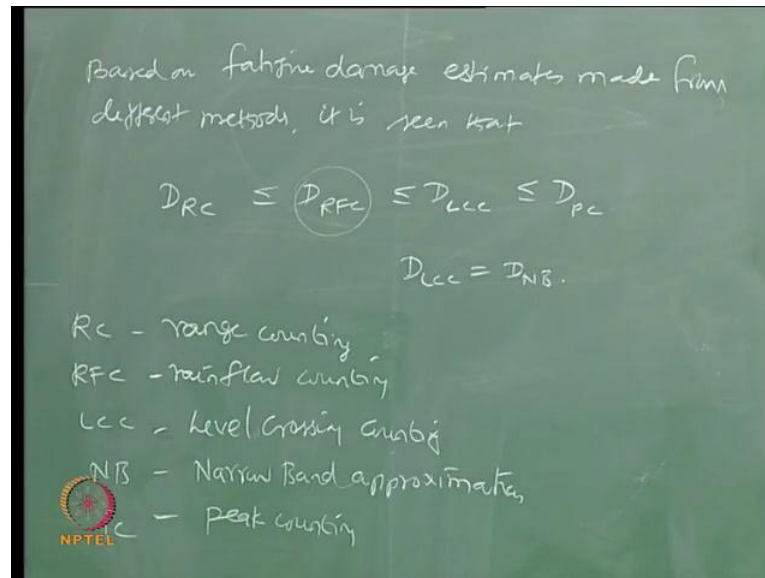 Based on fatigue damage estimates made from
different methods, it is seen that
D_RC ≤ D_RFC ≤ D_LCC ≤ D_PC
D_LCC = D_NB.
RC - range counting
RFC - rainflow counting
LCC - Level Crossing counting
NB - Narrow Band approximation
C - peak counting
NPTEL